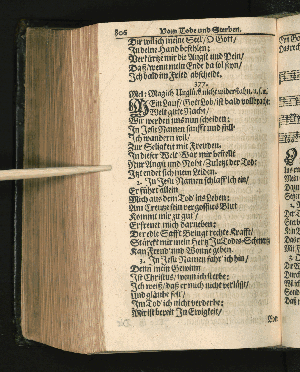 806 Vom Tode und Sterben.
Dir wil ich meine Seel/ O Gott/
In deine Hand befehlen;
Verkürtze mir die Angst und Pein/
Daß/ wenn mein Ende da sol seyn/
Ich bald im Friede abscheide.
377.
Mel: Mag ich Unglück nicht widerstahn/ u.s.f.
MEin Lauf/ Gott Lob/ ist bald vollbracht:
Welt gute Nacht/
Wir werden uns nun scheiden:
In Jesu Namen sanfft und still
Ich wandern wil/
Zur Seligkeit mit Freuden.
In dieser Welt War mir bestellt
Nur Angst und Noht/ Zuletzt der Todt:
Itzt endet sich mein Leiden.
2. In Jesu Namen schlaff ich ein/
Er führt allein
Mich aus dem Tod ins Leben:
Am Creutze sein vergossnes Blut
Kommt mir zu gut/
Erfreuet mich darneben:
Der edle Safft Bringt rechte Krafft/
Stärckt mir mein Hertz Im Todes-Schmertz
Kan Freud und Wonne geben.
3. In Jesu Namen fahr ich hin/
Denn mein Gewinn
Ist Christus/ wenn ich sterbe:
Ich weiß/ daß er mich nicht verläst/
Und gläube fest/
Im Tod ich nicht verderbe:
Mir ist bereit In Ewigkeit/